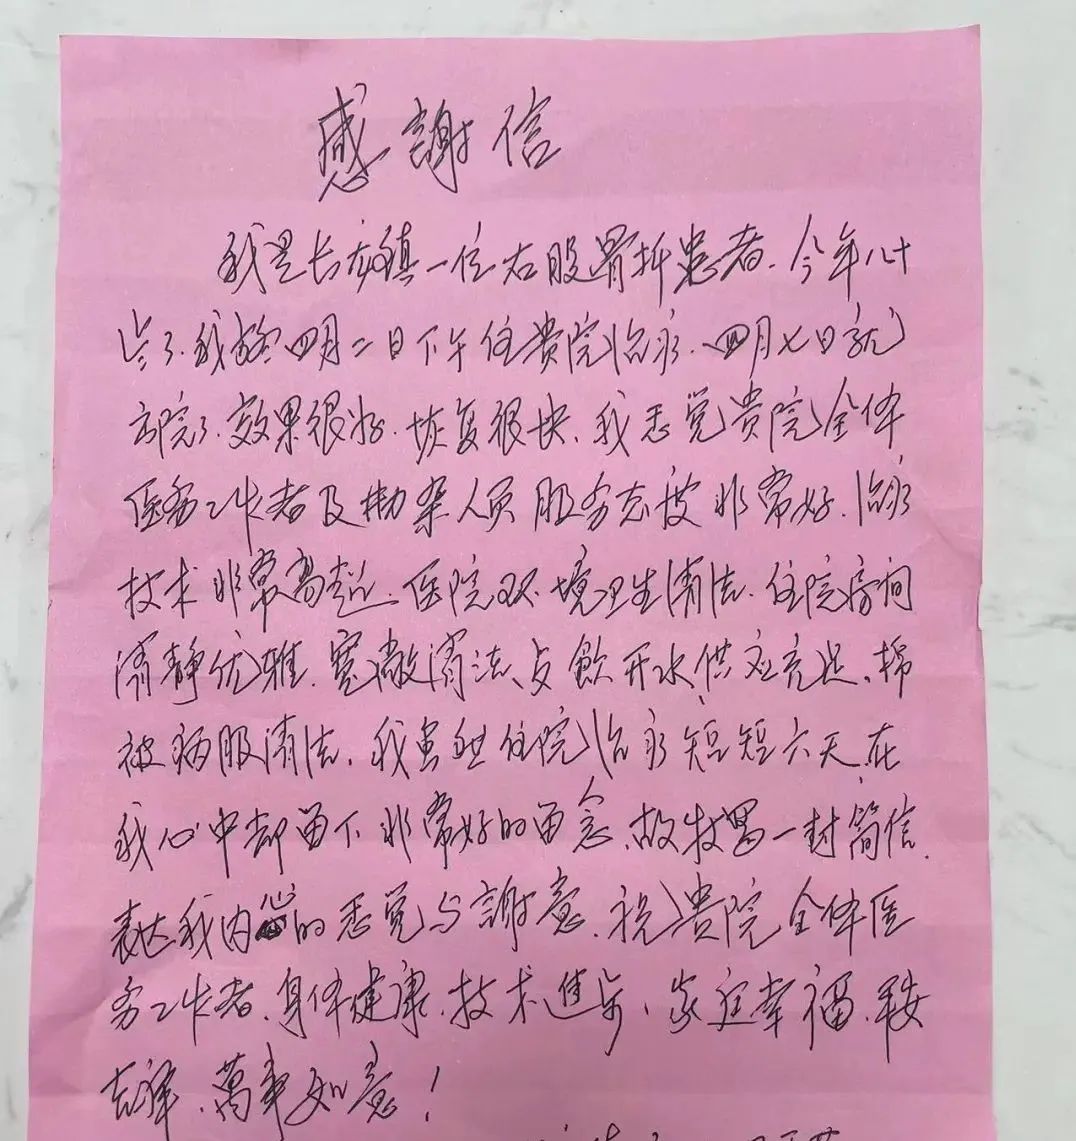 感謝信
我是长安镇一位右股骨折患者.今年八十
岁了.我於四月二日下午住贵院治疗.四月七日就
出院了.效果很好.恢复很快.我感觉贵院全体
医务工作者及勤杂人员服务态度非常好.治疗
技术非常高超.医院环境卫生清洁.住院房间
清静优雅.宽敞清洁、饮开水供应充足.棉
被病服清洁.我虽然住院治疗短短六天.在
我心中却留下非常好的留念.故特写一封简信.
表达我内心的感觉与謝意.祝贵院全体医
务工作者.身体健康.技术进步、家庭幸福.平安
吉祥.萬事如意!